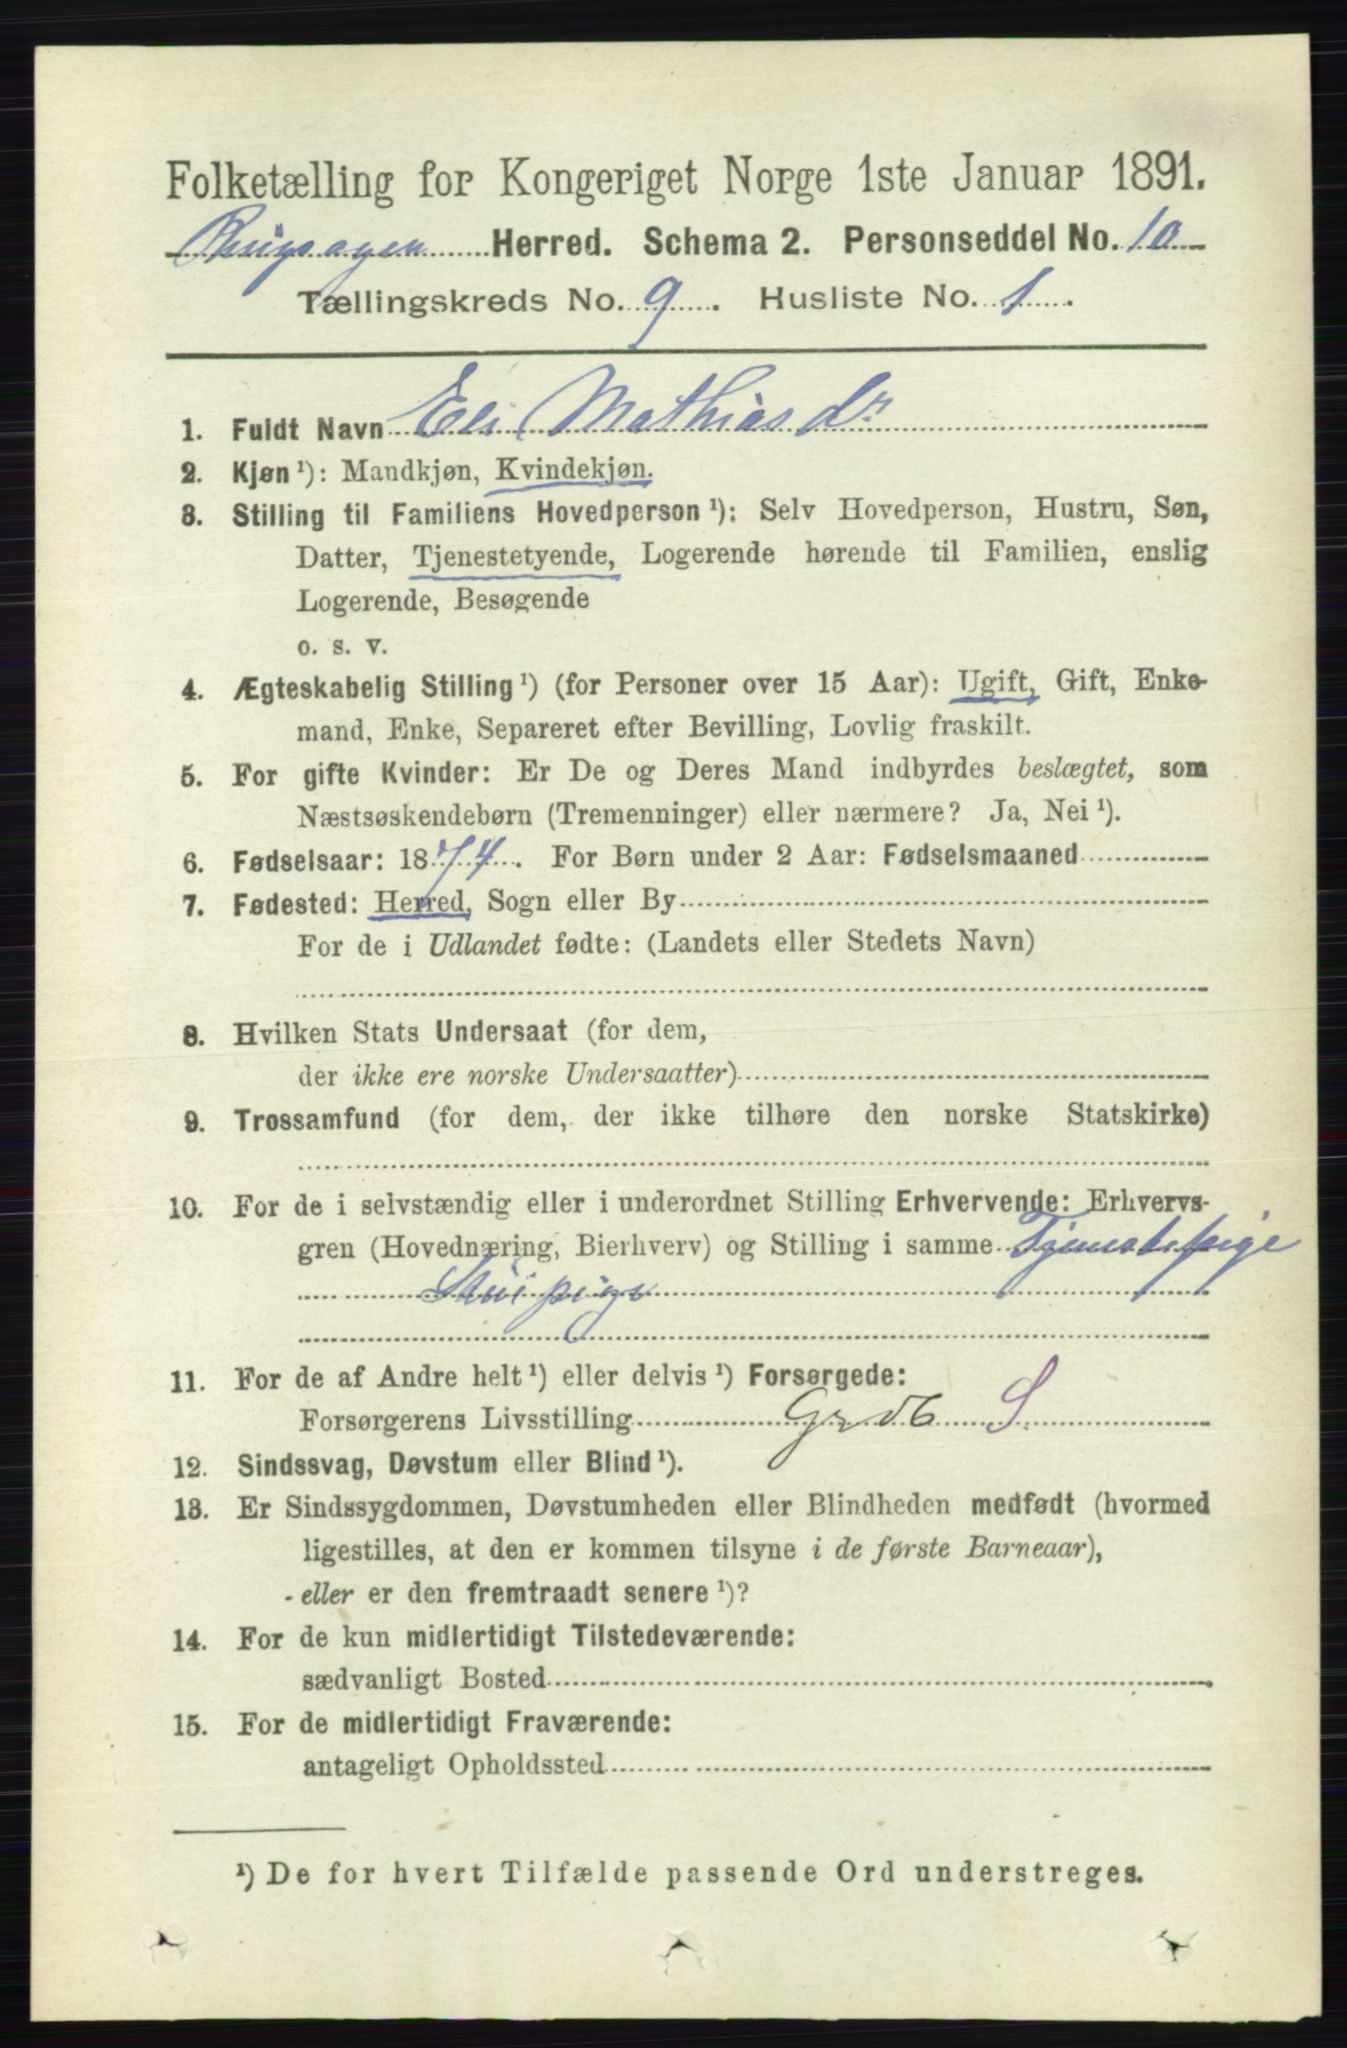 Folketælling for Kongeriget Norge 1ste Januar 1891.
Herred. Schema 2. Personseddel No. 10
Tællingskreds No. 9. Husliste No. 1.
1. Fuldt Navn Eli Mathiasdr
2. Kjøn ¹): Mandkjøn, Kvindekjøn.
3. Stilling til Familiens Hovedperson ¹): Selv Hovedperson, Hustru, Søn,
Datter, Tjenestetyende, Logerende hørende til Familien, enslig
Logerende, Besøgende
o. s. v.
4. Ægteskabelig Stilling ¹) (for Personer over 15 Aar): Ugift, Gift, Enke-
mand, Enke, Separeret efter Bevilling, Lovlig fraskilt.
5. For gifte Kvinder: Er De og Deres Mand indbyrdes beslægtet, som
Næstsøskendebørn (Tremenninger) eller nærmere? Ja, Nei ¹).
6. Fødselsaar: 1874. For Børn under 2 Aar: Fødselsmaaned
7. Fødested: Herred, Sogn eller By
For de i Udlandet fødte: (Landets eller Stedets Navn)
8. Hvilken Stats Undersaat (for dem,
der ikke ere norske Undersaatter)
9. Trossamfund (for dem, der ikke tilhøre den norske Statskirke)
10. For de i selvstændig eller i underordnet Stilling Erhvervende: Erhvervs-
gren (Hovednæring, Bierhverv) og Stilling i samme Tjenestepige
11. For de af Andre helt ¹) eller delvis ¹) Forsørgede:
Forsørgerens Livsstilling S.
12. Sindssvag, Døvstum eller Blind ¹).
13. Er Sindssygdommen, Døvstumheden eller Blindheden medfødt (hvormed
ligestilles, at den er kommen tilsyne i de første Barneaar),
- eller er den fremtraadt senere ¹)?
14. For de kun midlertidigt Tilstedeværende:
sædvanligt Bosted
15. For de midlertidigt Fraværende:
antageligt Opholdssted
¹) De for hvert Tilfælde passende Ord understreges.